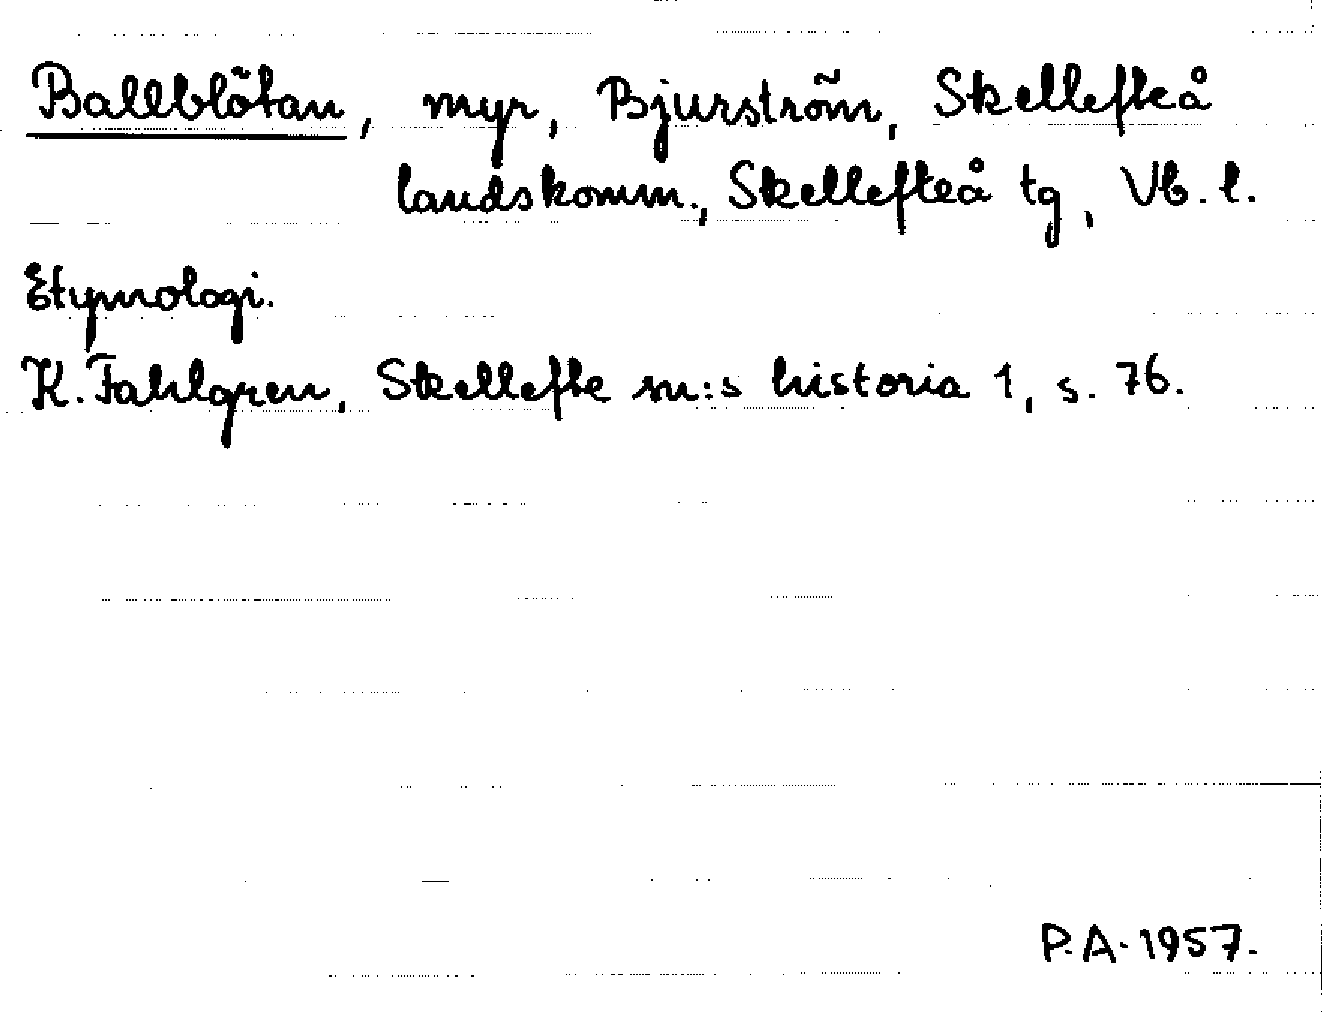 Ballblötan, myr, Bjurström, Skellefteå
landskomm., Skellefteå tg, Vb. l.
Etymologi.
K. Fahlgren, Skellefte sn:s historia 1, s. 76.
P.A. 1957.